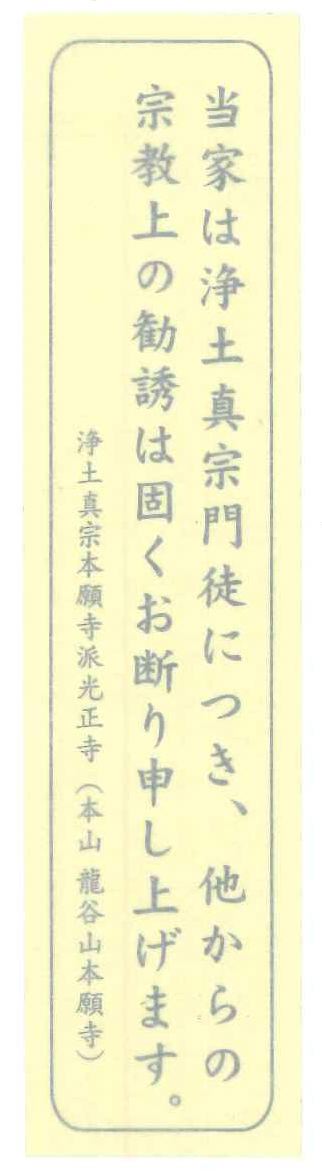 当家は浄土真宗門徒につき、他からの
宗教上の勧誘は固くお断り申し上げます。
浄土真宗本願寺派光正寺（本山 龍谷山本願寺）